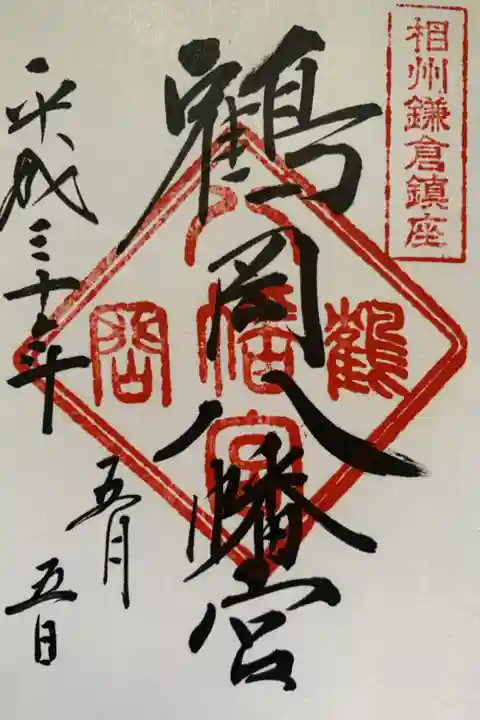 相州鎌倉鎮座
鶴岡八幡宮
鶴岡八幡宮
平成三十年
五月
五日